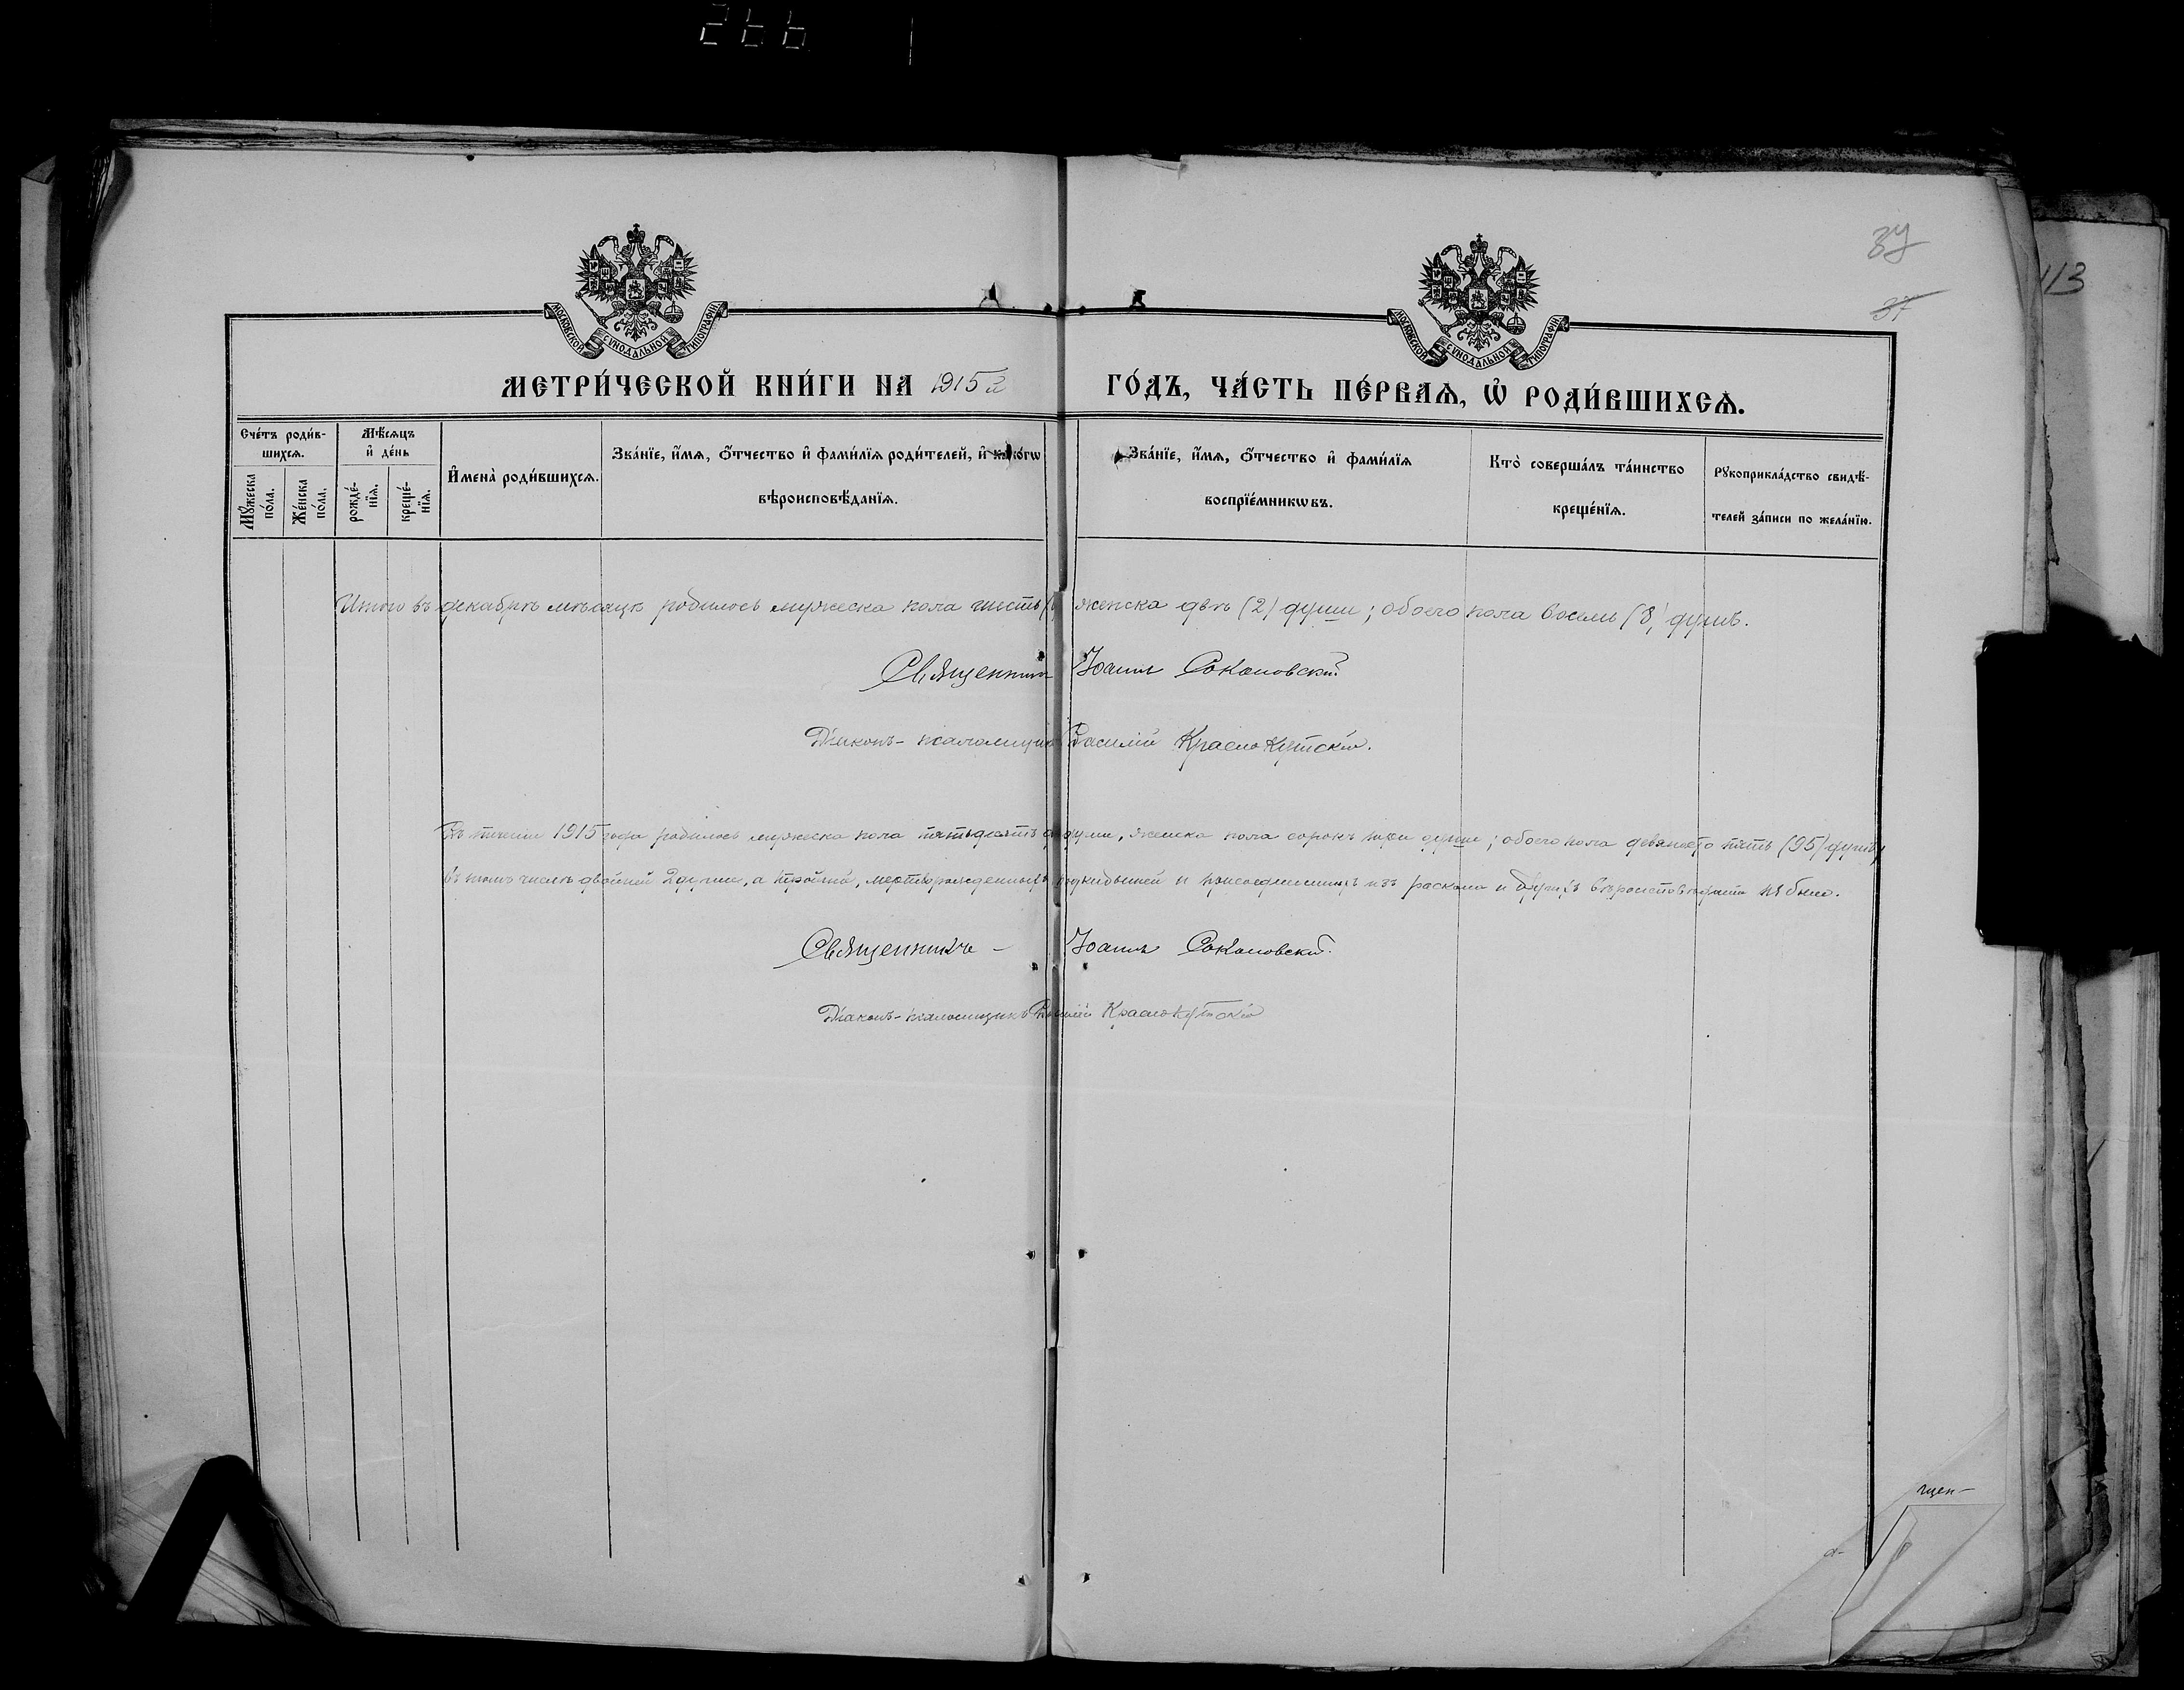 266
39
37
113
МОСКОВСКОЙ СѴНОДАЛЬНОЙ ТИПОГРАФІИ.
МОСКОВСКОЙ СѴНОДАЛЬНОЙ ТИПОГРАФІИ.
МЕТРИ́ЧЕСКОЙ КНИ́ГИ НА 1915 й ГО́ДЪ, ЧА́СТЬ ПЕ́РВАѦ, Ѡ РОДИ́ВШИХСѦ.
Сче́тъ роди́вшихсѧ.
Мꙋ́жеска по́ла.
Же́нска по́ла.
Мѣ́сѧцъ и҆ де́нь
рожде́нїѧ.
креще́нїѧ.
И҆мена̀ роди́вшихсѧ.
Зва́нїе, и҆́мѧ, ѻ҆́тчество и҆ фами́лїѧ роди́телей, и҆ како́гѡ
вѣроисповѣ́данїѧ.
Зва́нїе, и҆́мѧ, ѻ҆́тчество и҆ фами́лїѧ
воспрїе́мникѡвъ.
Кто̀ соверша́лъ та́инство
креще́нїѧ.
Рꙋкоприкла́дство свидѣ́-
телей за́писи по жела́нїю.
Итого въ декабрѣ мѣсяцѣ родилось мужеска пола шесть женска двѣ (2) души; обоего пола восемь (8) душъ.
Священникъ Іоаннъ Соколовскій
Діаконъ-псаломщикъ Василій Краснокутскій.
Въ теченіи 1915 года родилось мужеска пола пятьдесятъ души, женска пола сорокъ три души; обоего пола девяносто пять (95) душъ,
въ томъ числѣ двойней 2 души, а тройней, мертворожденныхъ, подкидышей и присоединенныхъ изъ раскола и другихъ вѣроисповѣданій не было.
Священникъ – Іоаннъ Соколовскій.
Діаконъ-псаломщикъ Василій Краснокутскій
щен-